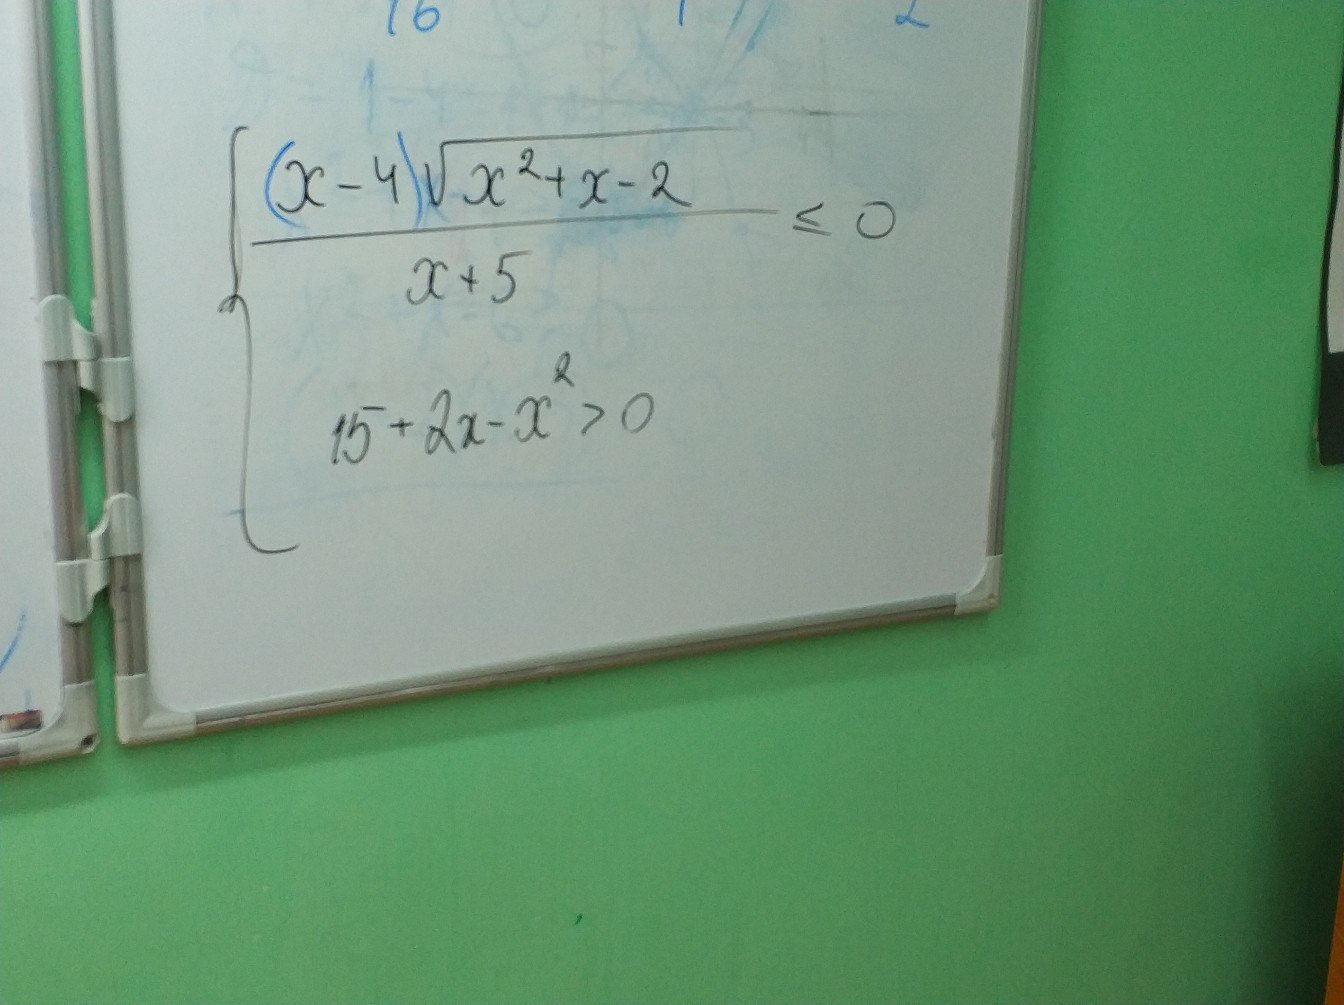 16 1 2
(x-4)√(x²+x-2)
x+5
≤ 0
15+2x-x²>0